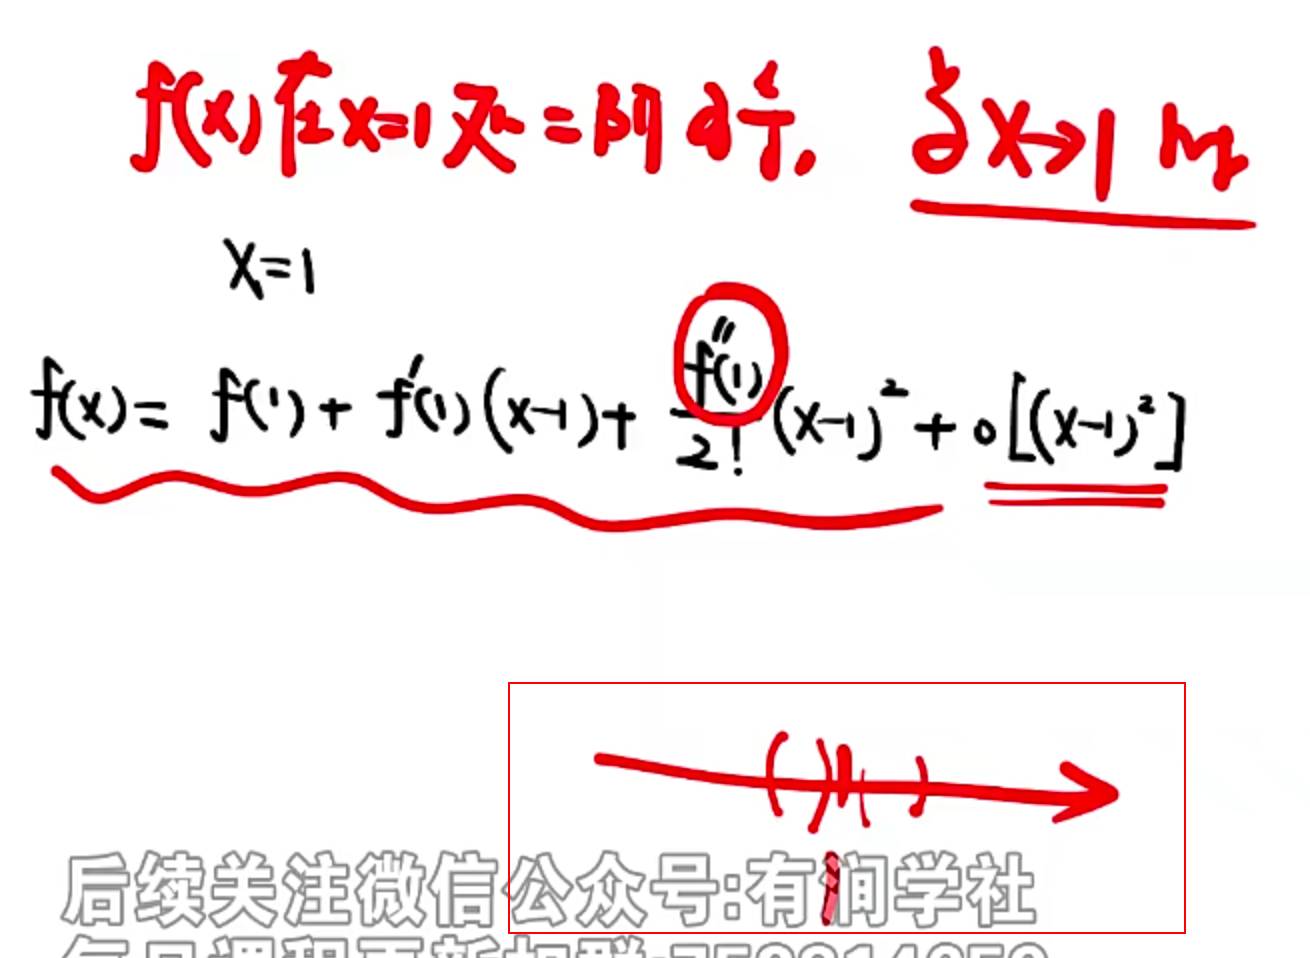 f(x)在x=1处二阶可导, 当x→1时
x=1
f(x)= f(1)+ f'(1)(x-1)+ f''(1)/2! (x-1)² + o[(x-1)²]
( )|( )
1
后续关注微信公众号:有润学社